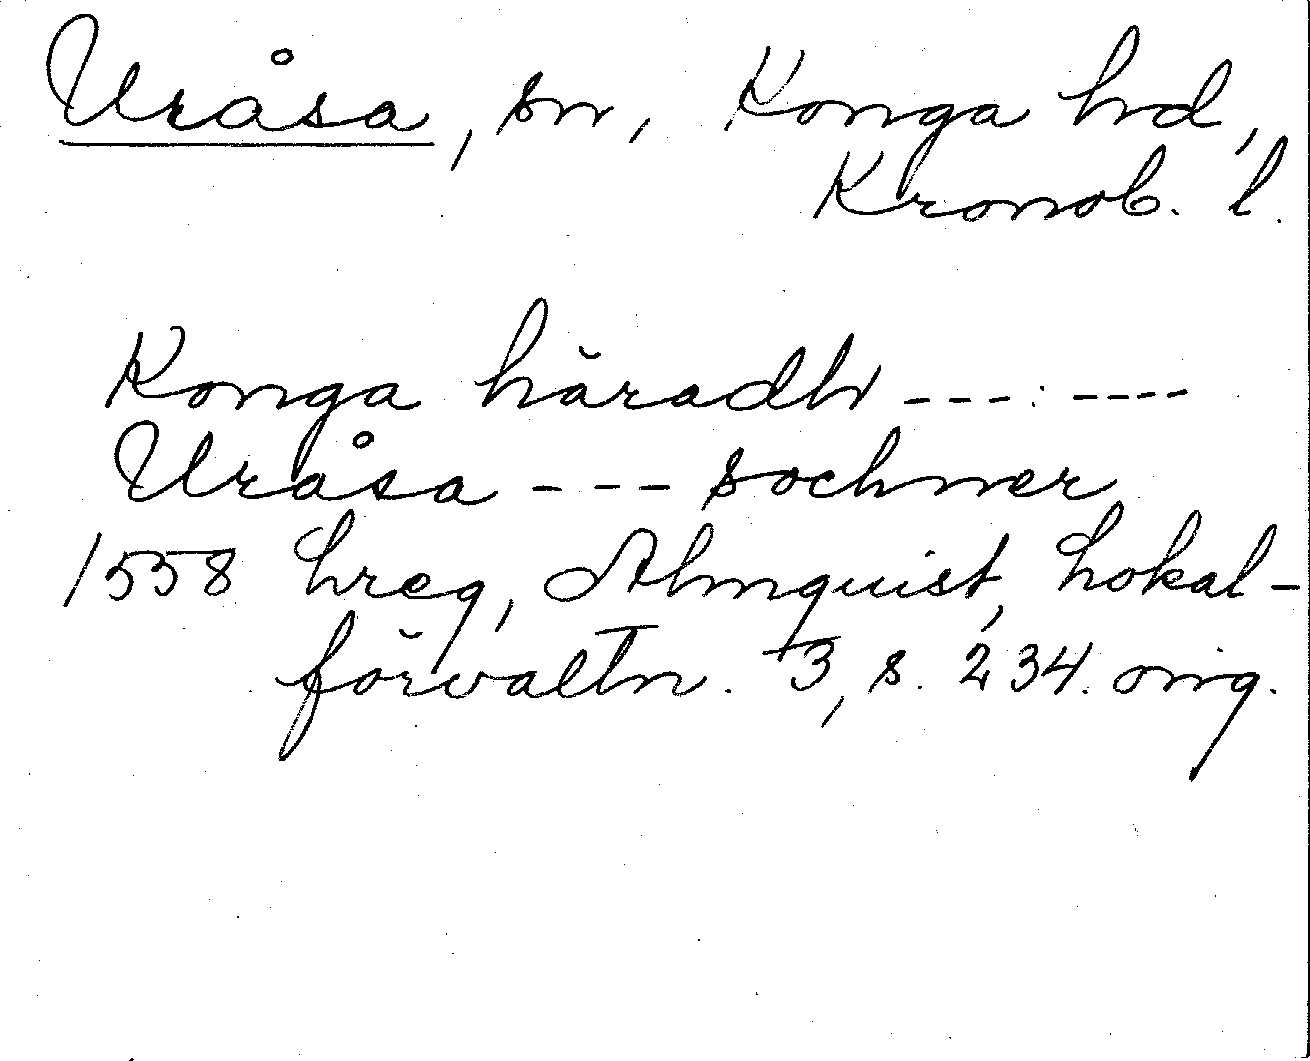 Uråsa, sn, Konga hd,
Kronob. l.
Konga häradh --- ----
Uråsa --- sochner
1558 Lreg, Almquist, Lokal-
förvaltn. 3, s. 234. orig.